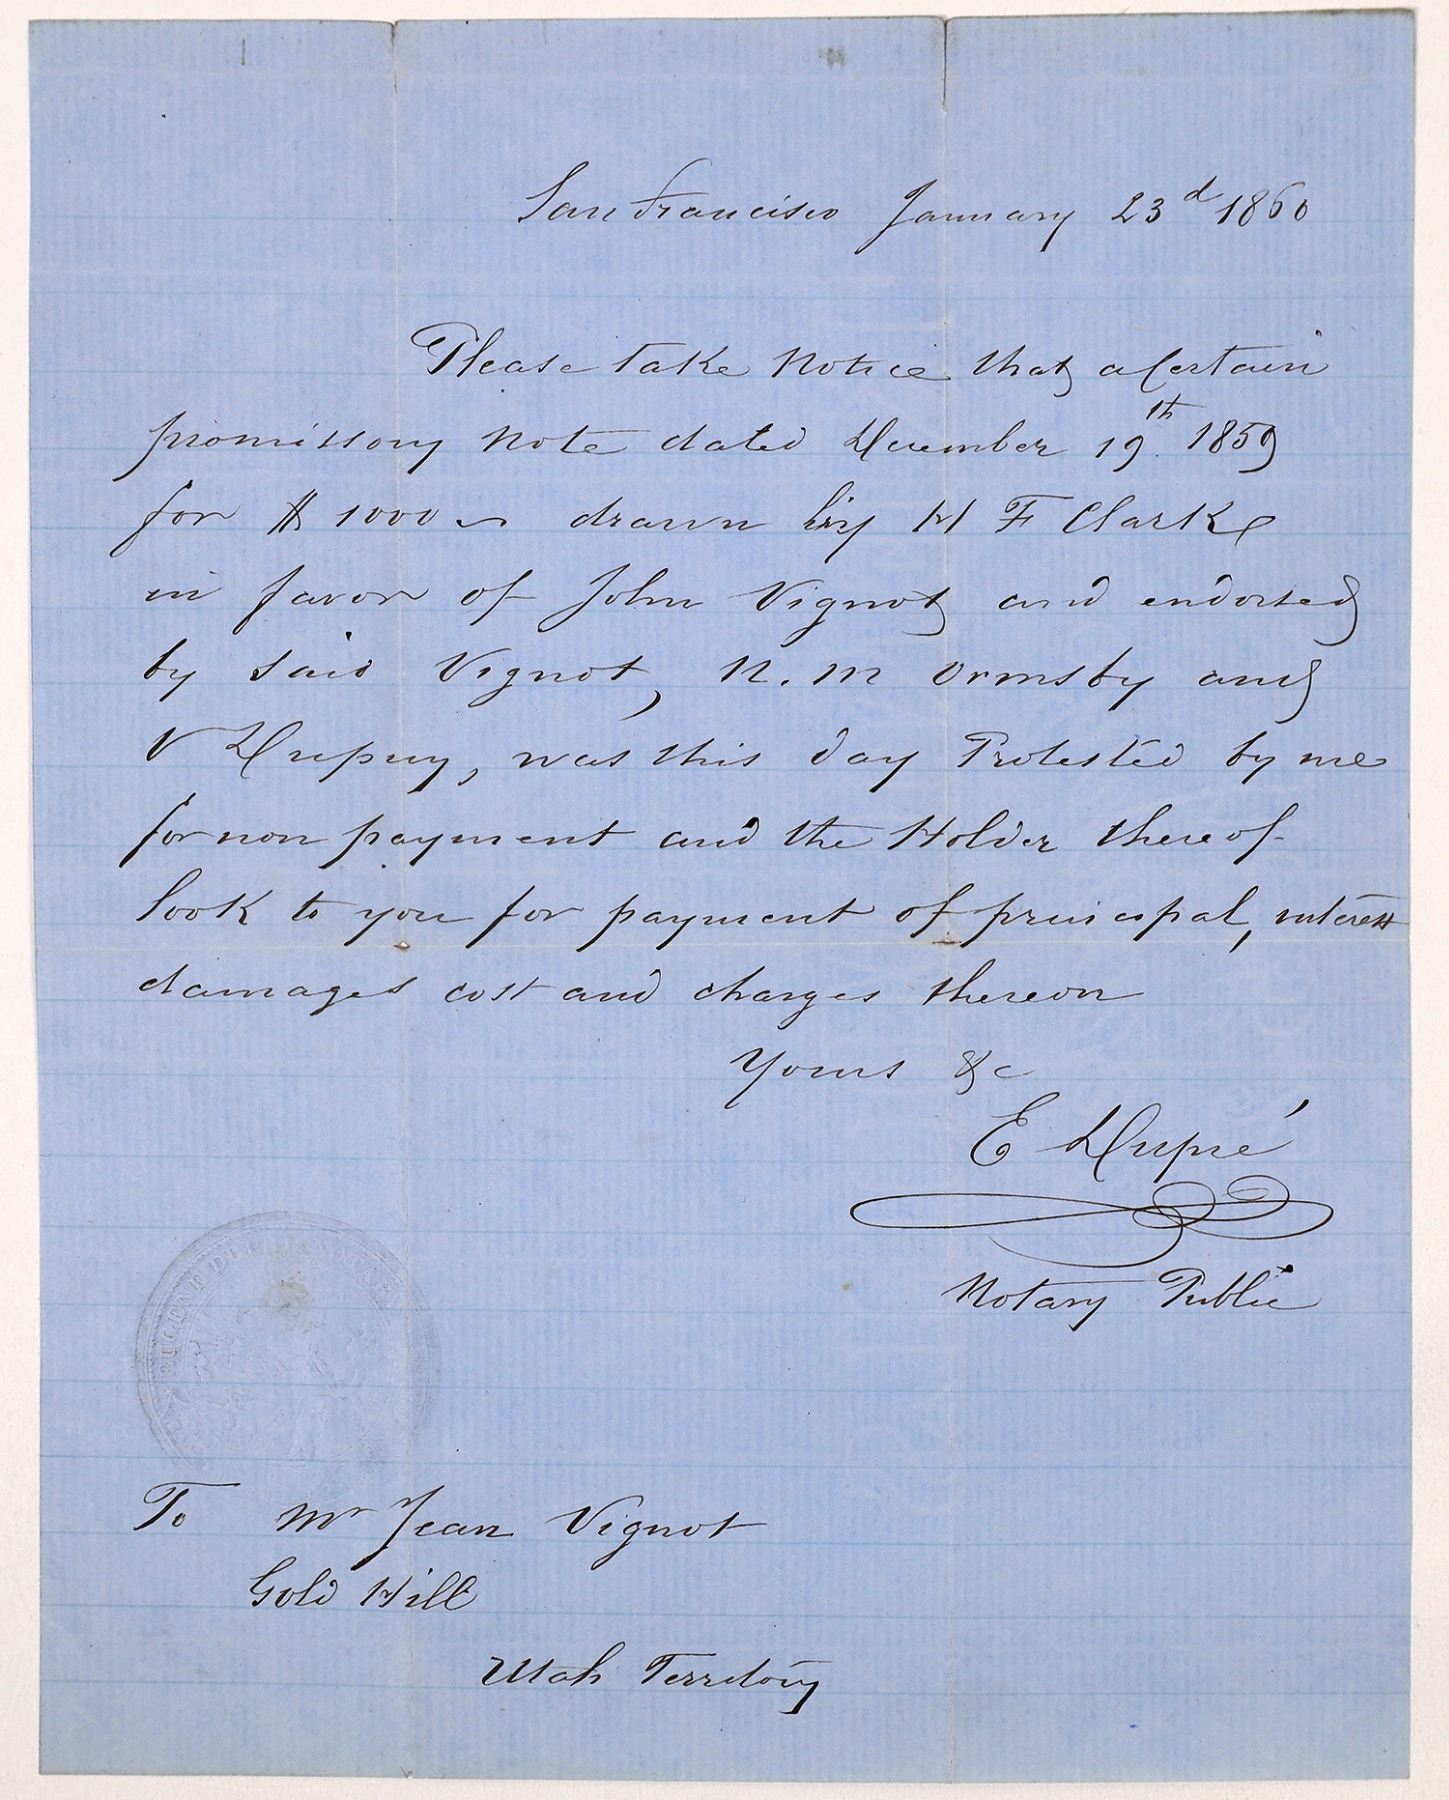 San Francisco January 23d 1860
Please take Notice that a Certain
promissory Note dated December 19th. 1859
for $1000 drawn by H F Clarke
in favor of John Vignot and endorsed
by said Vignot, N. M Ormsby and
V Dupuy, was this day Protested by me
for non payment and the Holder thereof
look to you for payment of principal, interest
damages cost and charges thereon
Yours &c
E Dupré
Notary Public
EUGENE
To Mr Jean Vignot
Gold Hill
Utah Territory